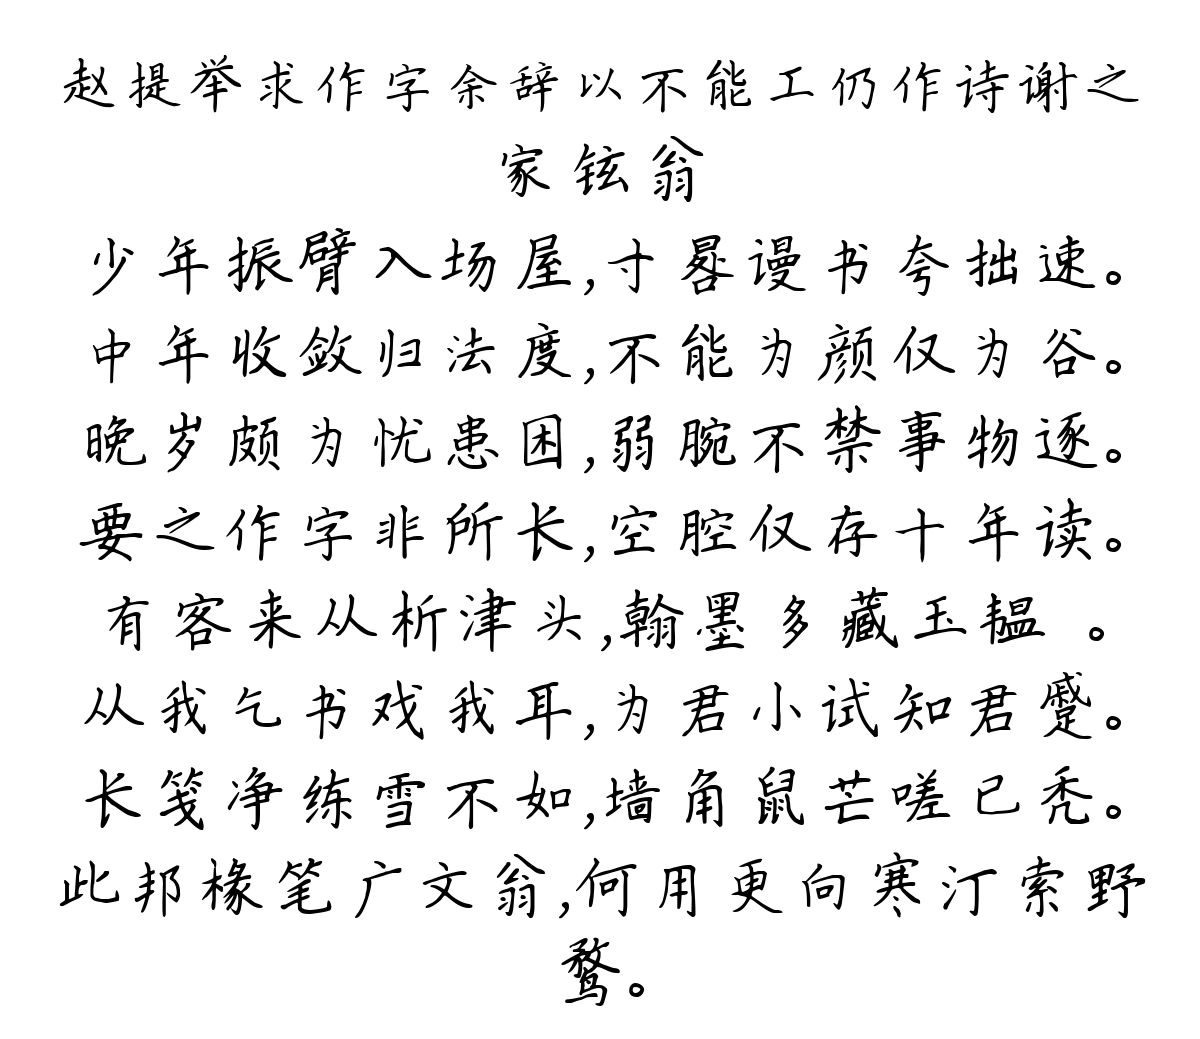 赵提举求作字余辞以不能工仍作诗谢之
家铉翁
少年振臂入场屋,寸晷谩书夸拙速。
中年收敛归法度,不能为颜仅为谷。
晚岁颇为忧患困,弱腕不禁事物逐。
要之作字非所长,空腔仅存十年读。
有客来从析津头,翰墨多藏玉韫 。
从我乞书戏我耳,为君小试知君蹙。
长笺净练雪不如,墙角鼠芒嗟已秃。
此邦椽笔广文翁,何用更向寒汀索野
鹜。